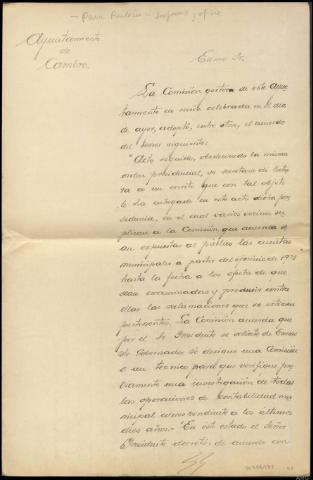 Ayuntamiento
de
Cambre.
Excmo Sr.
La Comisión gestora de este Ayun-
tamiento en sesión celebrada en el día
de ayer, adoptó, entre otros, el acuerdo
del tenor siguiente:
"Acto seguido, obedeciendo la misma
orden presidencial, se
a un escrito que con tal objeto
en este acto dicha pre-
sidencia, en el cual varios vecinos su-
plican a la Comisión que acuerde
expuestas al público las cuentas
municipales a partir del ejercicio de
hasta la fecha a los efectos de que
sean examinadas y producir contra
ellas las reclamaciones que se estimen
pertinentes. La Comisión acuerda que
por el Sr Presidente se solicite del Excmo
Sr Gobernador se designe una Comisión
o un técnico para que verifique
una investigación de todas
las operaciones de contabilidad mu-
nicipal a los últimos
años. "En este estado el Señor
Presidente decretó de acuerdo con